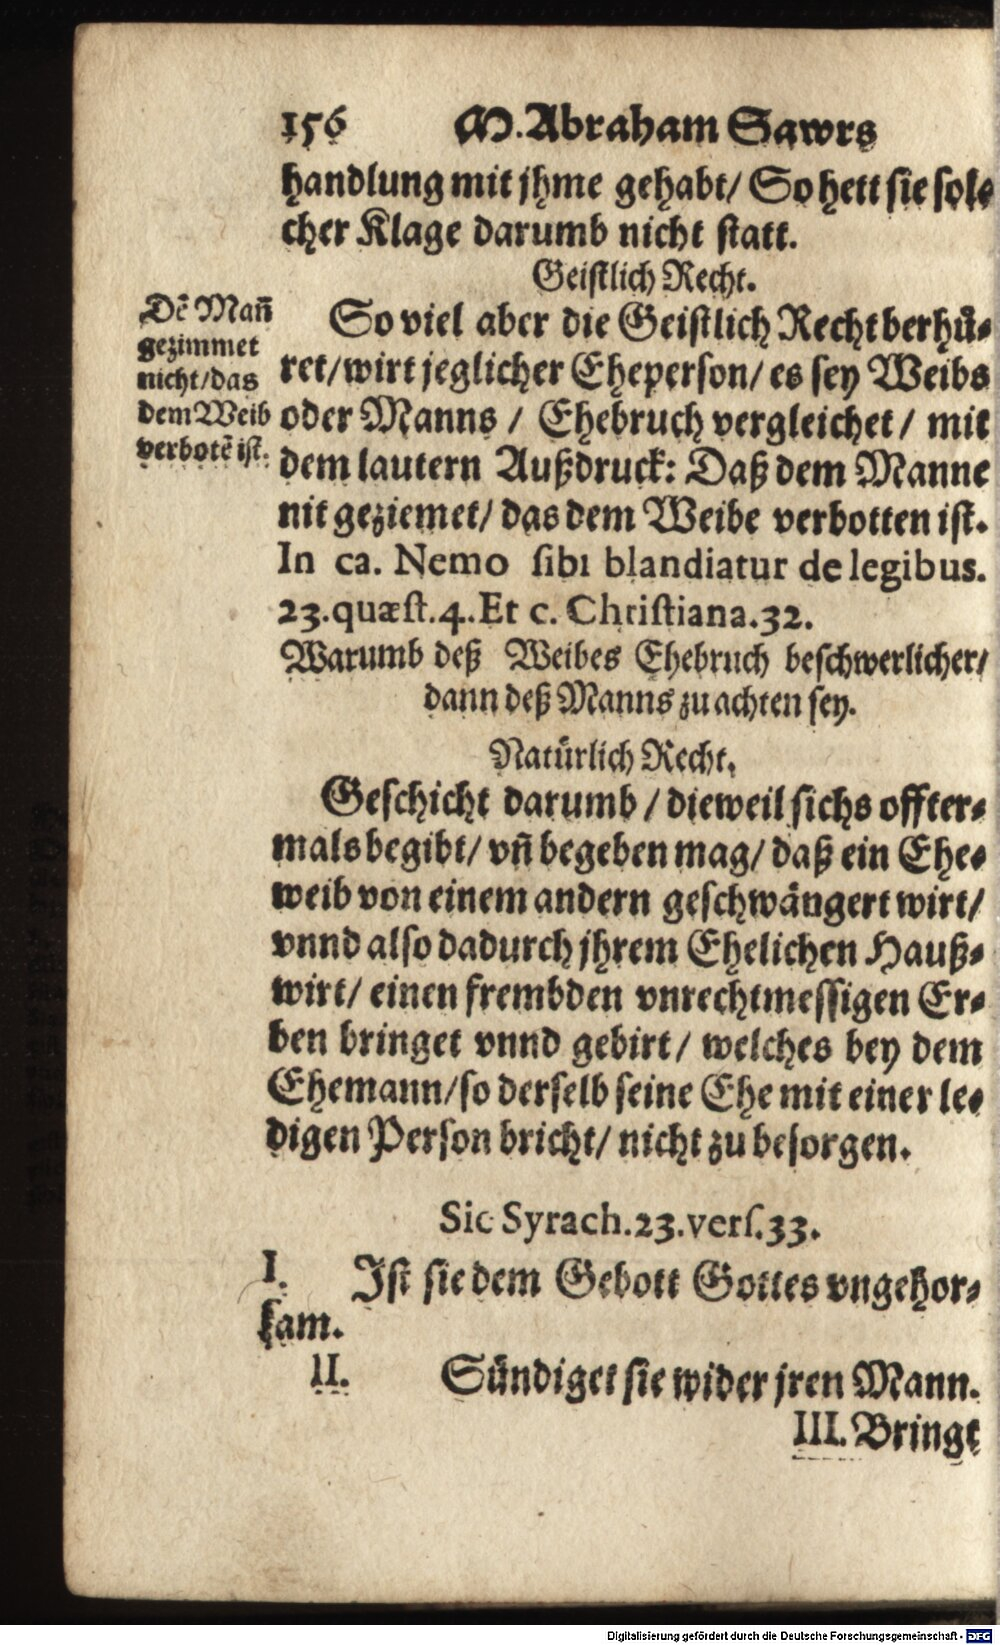 156 M. Abraham Sawrs
handlung mit jhme gehabt/ So hett sie sol-
cher Klage darumb nicht statt.
Geistlich Recht.
Dẽ Mañ
gezimmet
nicht/das
dem Weib
verbotẽ ist.
So viel aber die Geistlich Recht berhů-
ret/wirt jeglicher Eheperson/ es sey Weibs
oder Manns / Ehebruch vergleichet/ mit
dem lautern Außdruck: Daß dem Manne
nit geziemet/ das dem Weibe verbotten ist.
In ca. Nemo sibi blandiatur de legibus.
23.quæst.4.Et c. Christiana.32.
Warumb deß Weibes Ehebruch beschwerlicher/
dann deß Manns zu achten sey.
Natürlich Recht.
Geschicht darumb / dieweil sichs offter-
mals begibt/ vñ begeben mag/ daß ein Ehe-
weib von einem andern geschwängert wirt/
vnnd also dadurch jhrem Ehelichen Hauß-
wirt/ einen frembden vnrechtmessigen Er-
ben bringet vnnd gebirt/ welches bey dem
Ehemann/so derselb seine Ehe mit einer le-
digen Person bricht/ nicht zu besorgen.
Sic Syrach.23.vers.33.
I. Ist sie dem Gebott Gottes vngehor-
sam.
II. Sündiget sie wider jren Mann.
III. Bringt
Digitalisierung gefördert durch die Deutsche Forschungsgemeinschaft - DFG